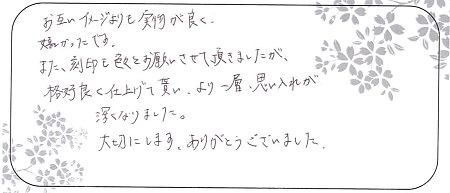 お互いイメージよりも実物が良く、
嬉しかったです。
また、刻印も色々とお願いさせて頂きましたが、
格好良く仕上げて貰い、より一層、思い入れが
深くなりました。
大切にします、ありがとうございました。